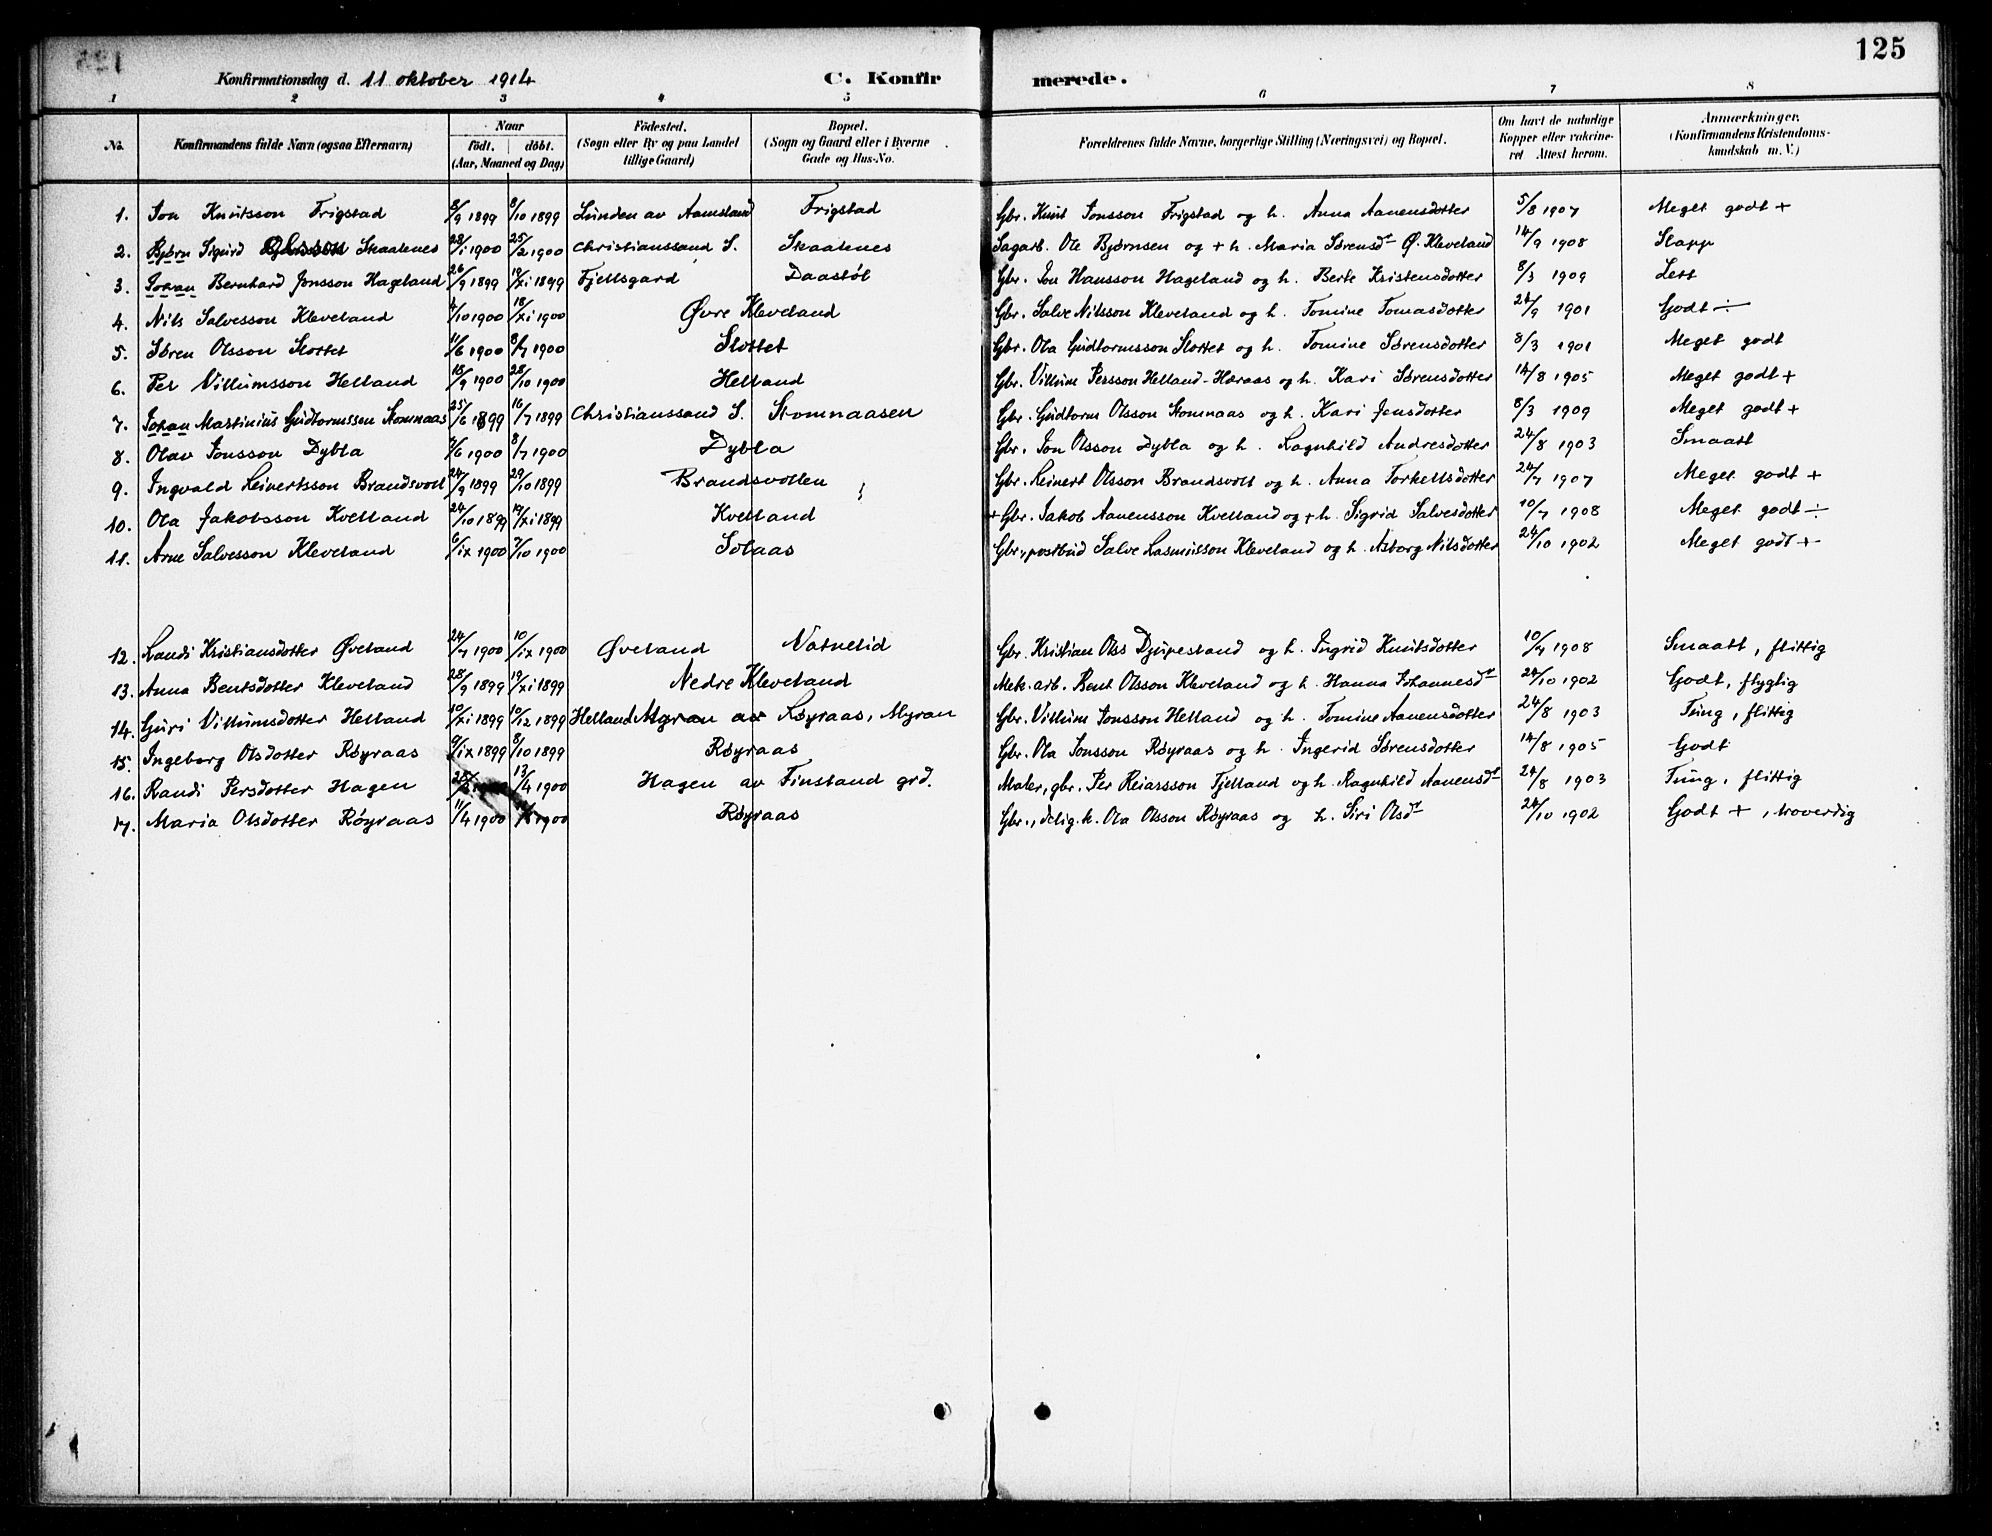 125
Konfirmationsdag d. 11 oktober 1914 C. Konfirmerede.
1 2 3 4 5 6 7 8
No. Konfirmandens fulde Navn (ogsaa Efternavn) Naar födt. döbt. (Aar, Maaned og Dag) Födested. (Sogn eller By og paa Landet tillige Gaard) Bopæl. (Sogn og Gaard eller i Byerne Gade og Hus-No. Forældrenes fulde Navne, borgerlige Stilling (Næringsvei) og Bopæl. Om havt de naturlige Kopper eller vakcineret Attest herom. Anmærkninger. (Konfirmandens Kristendomskundskab m. V.)
1. Jon Knutsson Frigstad 8/9 1899 8/10 1899 Lunden av Aamsland Frigstad Gbr. Knut Jonsson Frigstad og h. Anna Aanensdotter 5/8 1907 Meget godt +
2. Bjørn Sigurd Skaalnes 28/1 1900 25/2 1900 Christianssand S. Skaalnes Sagarb. Ole Bjørnsen og + h. Maria Sørensdr Ø. Kleveland 14/9 1908 Slapp
3. Johan Bernhard Jonsson Hageland 26/9 1899 19/XI 1899 Fjellsgard Daastøl Gbr. Jon Hansson Hageland og h. Berte Kristensdotter 8/3 1909 Lett
4. Nils Salvesson Kleveland 4/10 1900 18/XI 1900 Øvre Kleveland Gbr. Salve Nilsson Kleveland og h. Tomine Tomasdotter 24/9 1901 Godt ÷
5. Søren Olsson Slottet 11/6 1900 8/7 1900 Slottet Gbr. Ola Gudtormsson Slottet og h. Tomine Sørensdotter 8/3 1901 Meget godt
6. Per Villumsson Helland 15/9 1900 28/10 1900 Helland Gbr. Villum Persson Helland-Høraas og h. Kari Sørensdotter 14/8 1905 Meget godt +
7. Johan Martinius Gudtormssen Stomnaas 25/6 1899 16/7 1899 Christianssand S. Stomnaasen Gbr. Gudtorm Olsson Stomnaas og h. Kari Jensdotter 8/3 1909 Meget godt +
8. Olav Jonsson Dybla 7/6 1900 8/7 1900 Dybla Gbr. Jon Olsson Dybla og h. Ragnhild Andresdotter 24/8 1903 Smaatt
9. Ingvald Reinertsson Brandsvoll 24/9 1899 29/10 1899 Brandsvollen Gbr. Reinert Olsson Brandsvoll og h. Anna Torkellsdotter 24/7 1907 Meget godt +
10. Ola Jakobsson Kvelland 24/10 1899 19/XI 1899 Kvelland + Gbr. Jakob Aanensson Kvelland og + h. Sigrid Salvesdotter 10/7 1908 Meget godt ÷
11. Arne Salvesson Kleveland 6/IX 1900 7/10 1900 Solaas Gbr., postbud Salve Rasmusson Kleveland og h. Asborg Nilsdotter 24/10 1902 Meget godt +
12. Randi Kristiansdotter Øveland 24/7 1900 10/IX 1900 Øveland Natvelid Gbr. Kristian Olss Djupesland og h. Ingrid Knutsdotter 10/7 1908 Smaatt, flittig
13. Anna Bentsdotter Kleveland 28/9 1899 19/XI 1899 Nedre Kleveland Mek. arb. Bent Olsson Kleveland og h. Hanna Johannesdr 24/10 1902 Godt, flyglig
14. Guri Villumsdotter Helland 10/XI 1899 10/12 1899 Helland Myran av Røyraas, Myran Gbr. Villum Jonsson Helland og h. Tomine Aanensdotter 24/8 1903 Tung, flittig
15. Ingeborg Olsdotter Røyraas 9/IX 1899 8/10 1899 Røyraas Gbr. Ola Jonsson Røyraas og h. Ingerid Sørensdotter 14/8 1905 Godt
16. Randi Persdotter Hagen 13/4 1900 Hagen av Finsland grd. Maler, gbr. Per Reiarsson Fjelland og h. Ragnhild Aanensdr 24/8 1903 Tung, flittig
17. Maria Olsdotter Røyraas 11/4 1900 1900 Røyraas Gbr., delig. k. Ola Olsson Røyraas og h. Siri Olsdr 24/10 1902 Godt +, troverdig